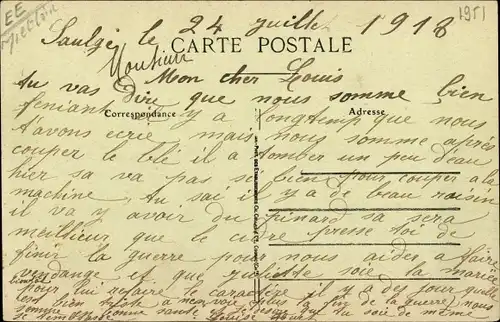 EE
1951
Saulgé le 24 juillet 1918
CARTE POSTALE
Monsieur
Mon cher Louis
tu vas dire que nous somme bien
feniant il y a longtemp que nous
Correspondance
Adresse
t'avons ecrie mais nous somme après
couper le blé il a tomber un peu deau
hier sa va pas se bien pour couper a la
machine, tu sai il y a de beau raisin
il va y avoir du pinard sa sera
meilleur que le cidre presse toi de
finir la guerre pour nous aider a faire
vendange et que Juliette soie la mariée
pour lui refaire le caractère il y a des jour que
c'est bien triste a nous vois tu la fin de la guerre nous
somme bonne santé et je desir que toi soie de même